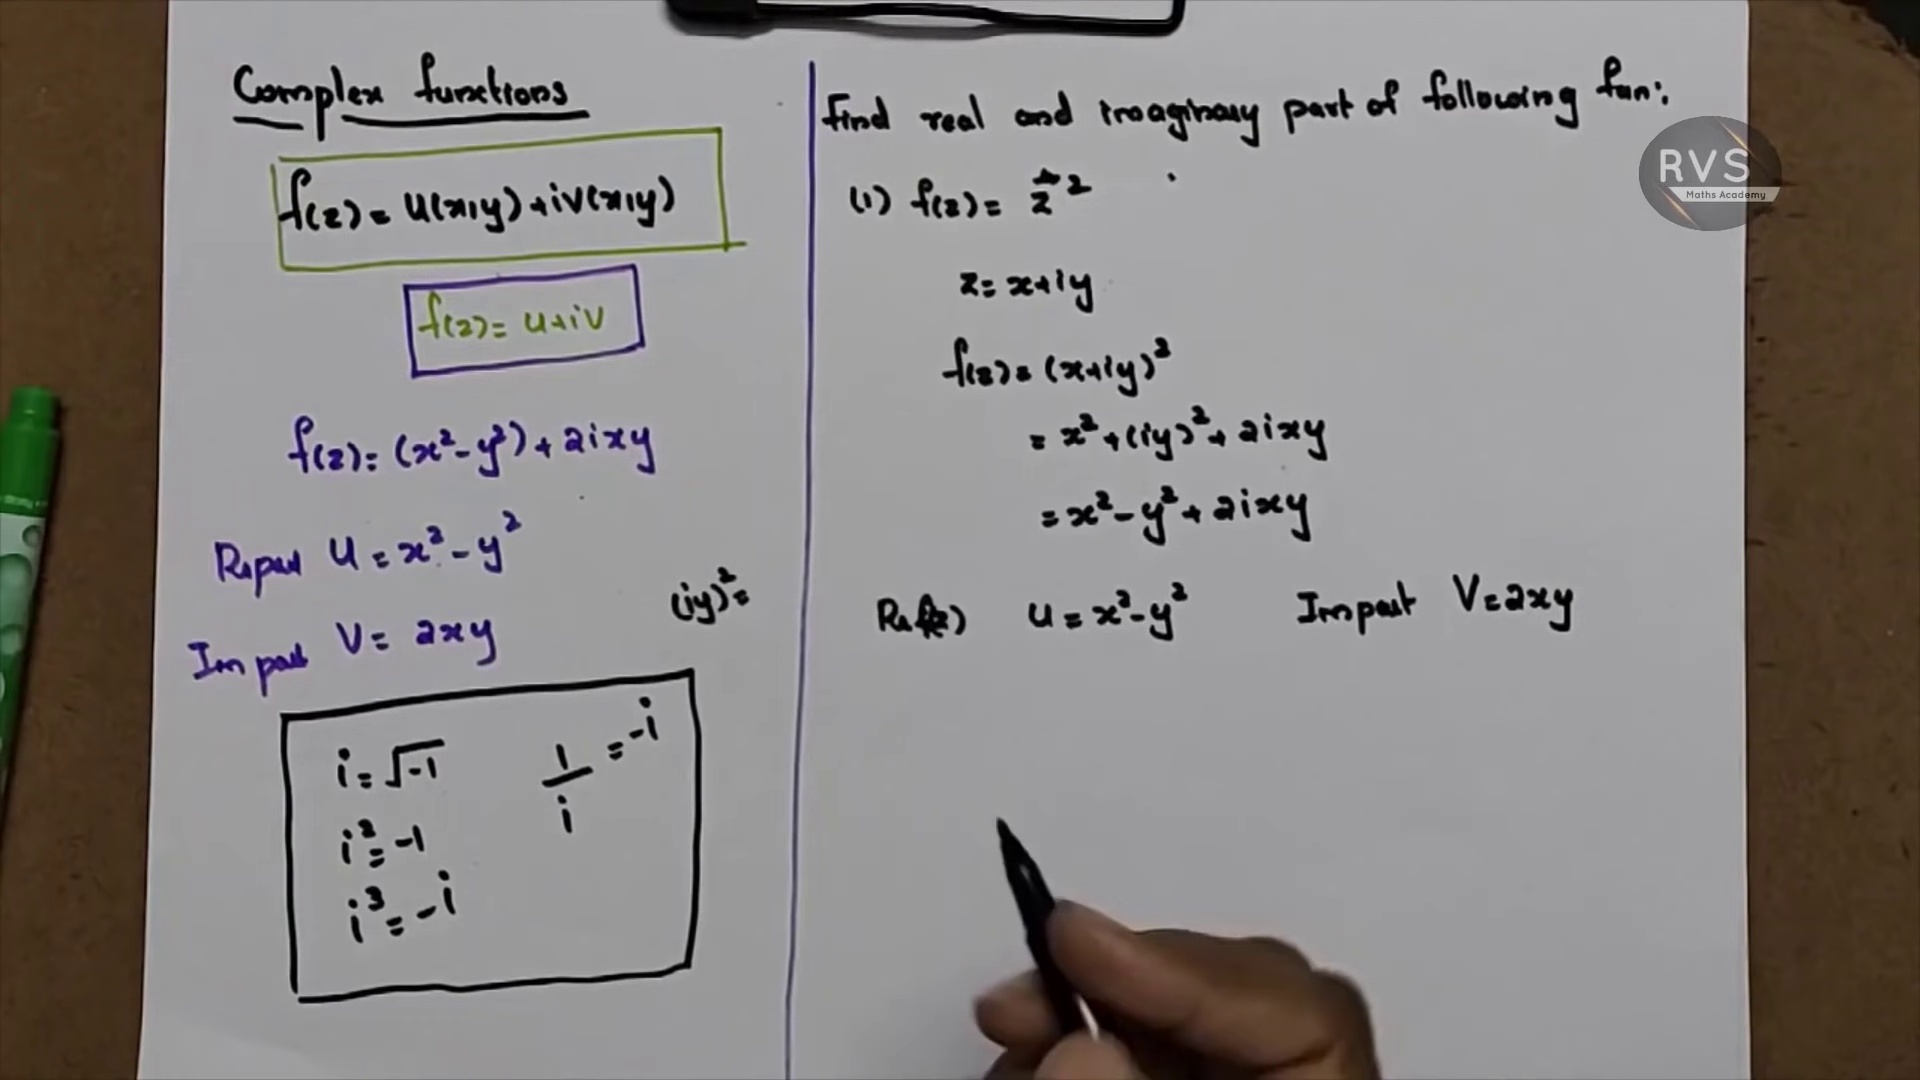 Complex functions
f(z) = u(x,y) + iv(x,y)
f(z) = u+iv
f(z) = (x² - y²) + 2ixy
Re part u = x² - y²
Im part V = 2xy
(iy)² =
i = √-1
1/i = -i
i² = -1
i³ = -i
Find real and imaginary part of following fun:
(1) f(z) = z²
z = x+iy
f(z) = (x+iy)²
= x² + (iy)² + 2ixy
= x² - y² + 2ixy
Re f(z) u = x² - y² Im part V = 2xy
RVS
Maths Academy